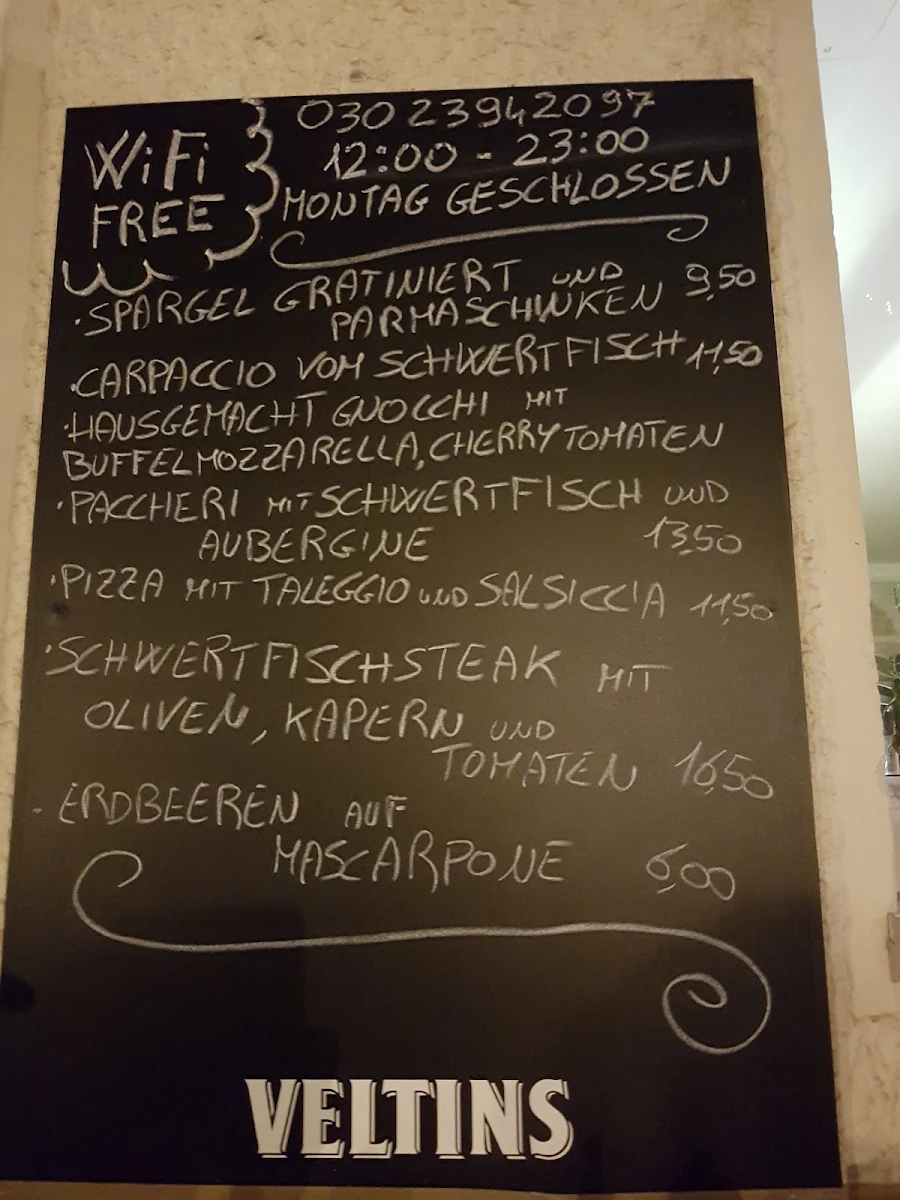 WiFi FREE
030 23942097
12:00 - 23:00
MONTAG GESCHLOSSEN
·SPARGEL GRATINIERT UND
PARMASCHINKEN 9,50
·CARPACCIO VOM SCHWERTFISCH 11,50
·HAUSGEMACHT GNOCCHI MIT
BUFFELMOZZARELLA, CHERRYTOMATEN
·PACCHERI MIT SCHWERTFISCH UND
AUBERGINE 13,50
·PIZZA MIT TALEGGIO UND SALSICCIA 11,50
·SCHWERTFISCHSTEAK MIT
OLIVEN, KAPERN UND
TOMATEN 16,50
- ERDBEEREN AUF
MASCARPONE 6,00
VELTINS